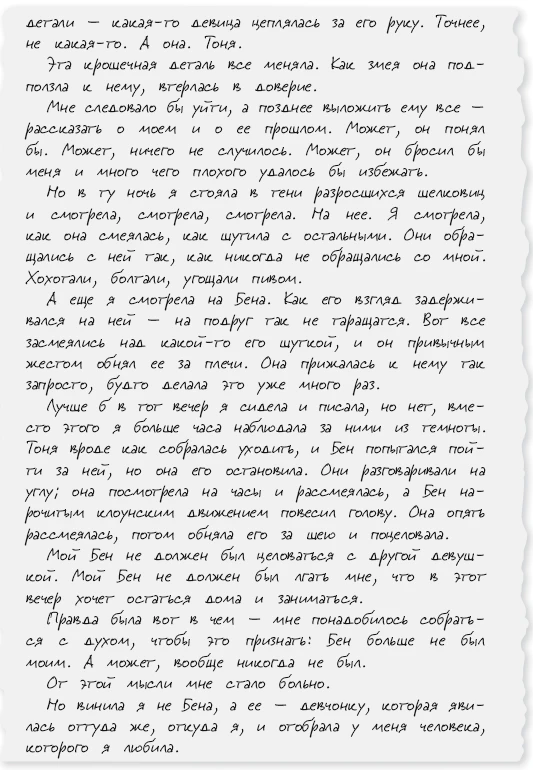 детали — какая-то девица цеплялась за его руку. Точнее,
не какая-то. А она. Тоня.
Эта крошечная деталь все меняла. Как змея она под-
ползла к нему, втерлась в доверие.
Мне следовало бы уйти, а позднее выложить ему все —
рассказать о моем и о ее прошлом. Может, он понял
бы. Может, ничего не случилось. Может, он бросил бы
меня и много чего плохого удалось бы избежать.
Но в ту ночь я стояла в тени разросшихся шелковиц
и смотрела, смотрела, смотрела. На нее. Я смотрела,
как она смеялась, как шутила с остальными. Они обра-
щались с ней так, как никогда не обращались со мной.
Хохотали, болтали, угощали пивом.
А еще я смотрела на Бена. Как его взгляд задержи-
вался на ней — на подруг так не таращатся. Вот все
засмеялись над какой-то его шуткой, и он привычным
жестом обнял ее за плечи. Она прижалась к нему так
запросто, будто делала это уже много раз.
Лучше б в тот вечер я сидела и писала, но нет, вме-
сто этого я больше часа наблюдала за ними из темноты.
Тоня вроде как собралась уходить, и Бен попытался пой-
ти за ней, но она его остановила. Они разговаривали на
углу; она посмотрела на часы и рассмеялась, а Бен на-
рочитым клоунским движением повесил голову. Она опять
рассмеялась, потом обняла его за шею и поцеловала.
Мой Бен не должен был целоваться с другой девуш-
кой. Мой Бен не должен был лгать мне, что в этот
вечер хочет остаться дома и заниматься.
Правда была вот в чем — мне понадобилось собрать-
ся с духом, чтобы это признать: Бен больше не был
моим. А может, вообще никогда не был.
От этой мысли мне стало больно.
Но винила я не Бена, а ее — девчонку, которая яви-
лась оттуда же, откуда я, и отобрала у меня человека,
которого я любила.